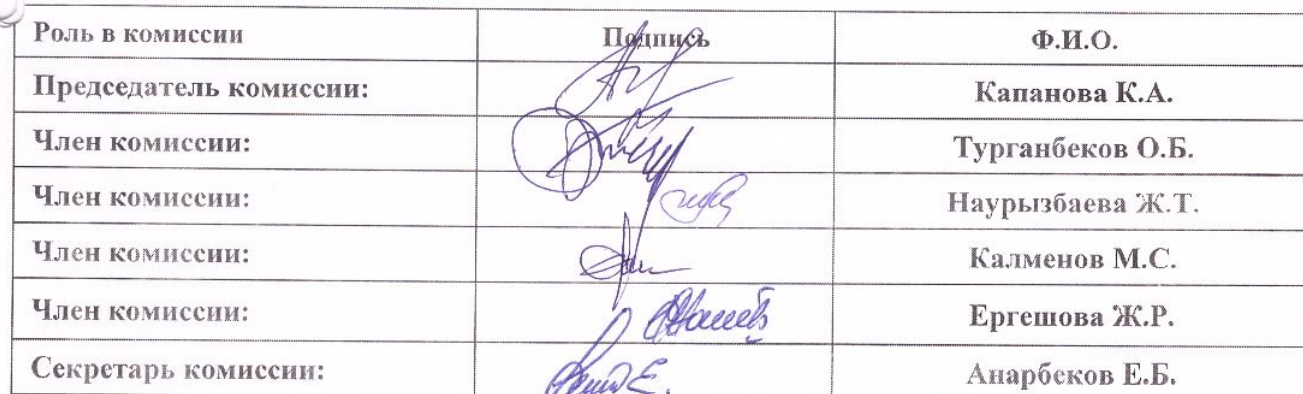 Роль в комиссии Подпись Ф.И.О.
Председатель комиссии: Капанова К.А.
Член комиссии: Турганбеков О.Б.
Член комиссии: Наурызбаева Ж.Т.
Член комиссии: Калменов М.С.
Член комиссии: Ергешова Ж.Р.
Секретарь комиссии: Анарбеков Е.Б.